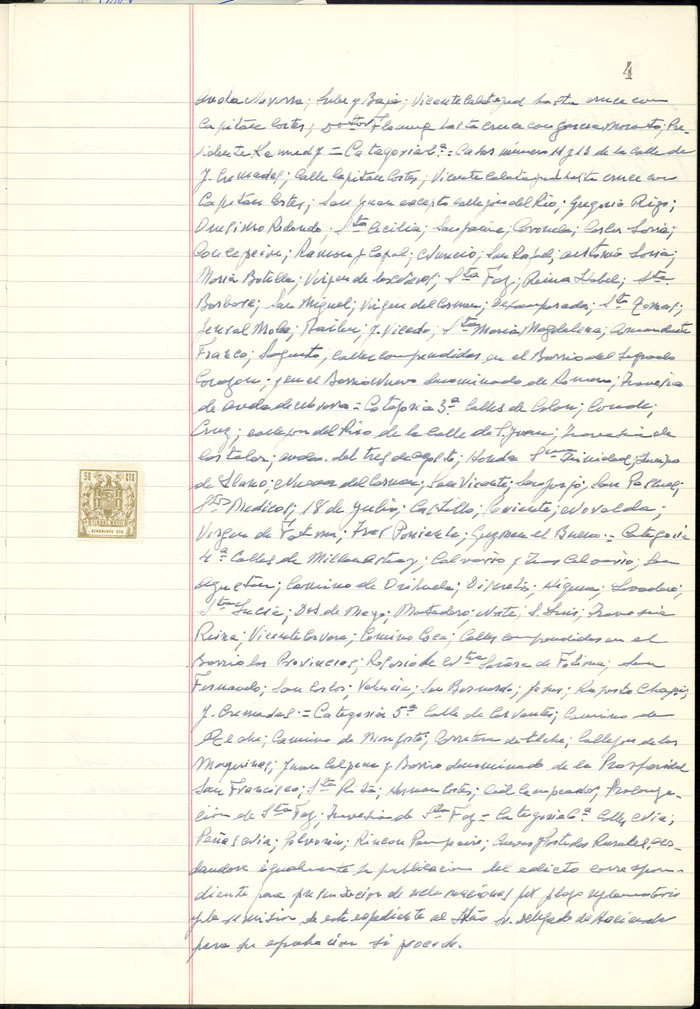 4
Avda Navarra; Sube y Baja; Vicente Calatayud hasta cruce con
Capitan Cortes; Doctor Fleming hasta cruce con Garcia Morato; Pre-
sidente Kennedy = Categoria 2ª = Casas número 11 y 13 de la calle de
J. Cremades; Calle Capitan Cortes; Vicente Calatayud hasta cruce con
Capitan Cortes; San Juan excepto callejon del Rio; Gregorio Rizo;
Redondo; Sta Cecilia; Coronela; Carlos Soria;
Concepcion; Ramon y Cajal; Nuncio; San Rafael; Antonio Soria;
Maria Botella; Virgen de los; Sta Faz; Reina Isabel; Sta
Barbara; San Miguel; Virgen del Carmen; Desamparados; Sto Tomas;
General Mola; Bailen; J. Vicedo; Sta Maria Magdalena; Comandante
Franco; Sagunto; calles comprendidas en el Barrio del Sagrado
Corazon; y en el Barrio Nuevo denominado de Romero; Travesia
de Avda de Navarra = Categoria 3ª Calles de Colon; Conde;
Cruz; callejon del Rizo de la calle de S. Juan; Travesia de
Avda. del tres de agosto; Honda Sma Trinidad; Queipo
de Llano; Nueva del Carmen; San Vicente; San Jorge; San Pascual;
Stos Medicos; 18 de Julio; Castillo; Poniente; Novelda;
Virgen de Fatima; Tras Poniente; Guzman el Bueno = Categoria
4ª Calles de Millan Astray; Calvario y Tras Calvario; San
Agustin; Camino de Orihuela; Desierto; Higuera; Lavadero;
Sta Lucia; Dos de Mayo; Matadero; Norte; S. Luis; Travesia
Reina; Vicente Cervera; Camino Coca; Calles comprendidas en el
Barrio las Provincias; Rosario de Ntra Señora de Fatima; San
Fernando; San Carlos; Valencia; San Bernardo; Jesus; Ruperto Chapi;
J. Cremades = Categoria 5ª Calle de Cervantes; Camino de
Elche; Camino de Monforte; Carretera de Elche; Callejon de las
Maquinas; Juan Calpena y Barrio denominado de la Prosperidad
San Francisco; Sta Rita; Hernan Cortes; Cid Campeador; Prolonga-
cion de Sta Faz; Travesia de Sta Faz = Categoria 6ª Calle Via;
Peñas Via; Polvorin; Rincon; Cuevas y Partidas Rurales, acor-
dandose igualmente la publicacion del edicto correspon-
diente para presentacion de reclamaciones por plazo reglamentario
y la remision de este expediente al Iltmo Sr. Delegado de Hacienda
para su aprobacion si procede.
50 CTS